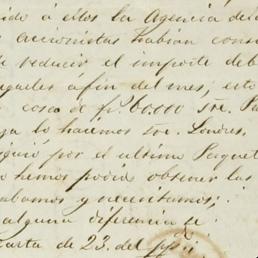 ido á ellos la Agencia de
s accionistas habian cons
de reducir el importe deb
egarles á fin del mes; esto
cosa de fr. 60.000 sre. Pa
ya lo hacemos sre. Londres.
por el ultimo Paquet
no hemos podido obtener las
y necesitamos;
alguna diferencia se
carta de 23. del ppdo